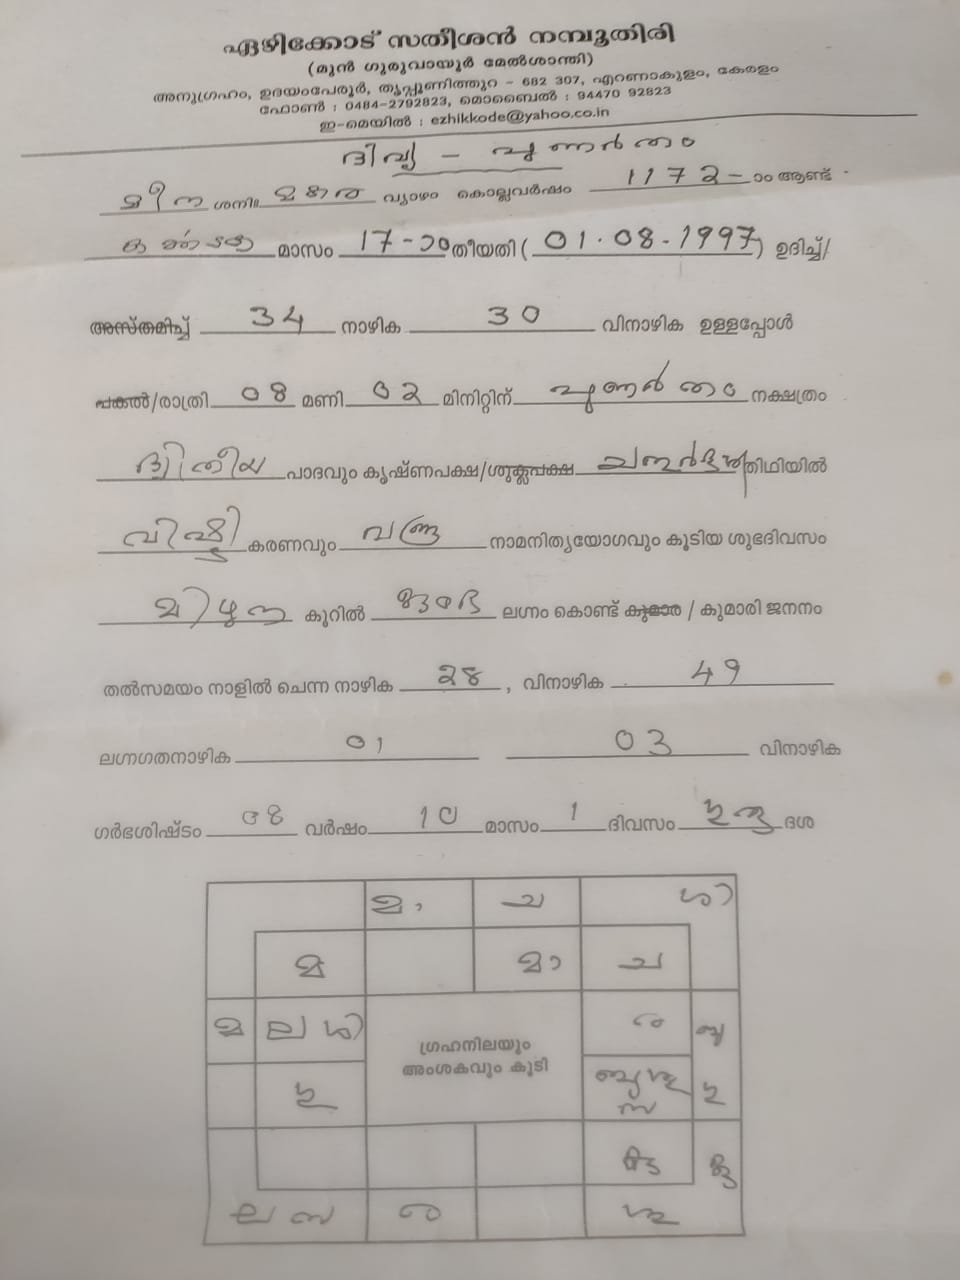 ഏഴിക്കോട് സതീശൻ നമ്പൂതിരി
(മുൻ ഗുരുവായൂർ മേൽശാന്തി)
അനുഗ്രഹം, ഉദയംപേരൂർ, തൃപ്പൂണിത്തുറ - 682 307, എറണാകുളം, കേരളം
ഫോൺ : 0484-2792823, മൊബൈൽ : 94470 92823
ഇ-മെയിൽ : ezhikkode@yahoo.co.in
ദിവ്യ - പുണർതം
മീന ശനി॥ മകര വ്യാഴം കൊല്ലവർഷം 1172- ാം ആണ്ട്
കർക്കടക മാസം 17-ാം തീയതി ( 01.08.1997 ) ഉദിച്ച്/
അസ്തമിച്ച് 34 നാഴിക 30 വിനാഴിക ഉള്ളപ്പോൾ
പകൽ/രാത്രി 08 മണി 02 മിനിറ്റിന് പുണർതം നക്ഷത്രം
ദ്വിതീയ പാദവും കൃഷ്ണപക്ഷ/ശുക്ലപക്ഷ ചതുർദശി തിഥിയിൽ
വിഷ്ടി കരണവും വജ്ര നാമനിത്യയോഗവും കൂടിയ ശുഭദിവസം
മിഥുന കൂറിൽ കുംഭ ലഗ്നം കൊണ്ട് കുമാര / കുമാരി ജനനം
തൽസമയം നാളിൽ ചെന്ന നാഴിക 28 , വിനാഴിക 49
ലഗ്നഗതനാഴിക 01 03 വിനാഴിക
ഗർഭശിഷ്ടം 08 വർഷം 10 മാസം 1 ദിവസം ദശ
മ ച ശി
മ മാ ച
മ ല ശി ര
ഗ്രഹനിലയും
അംശകവും കൂടി
ഗു ബു ശു ഗു
സ
കു കു
ല സ ര ശു